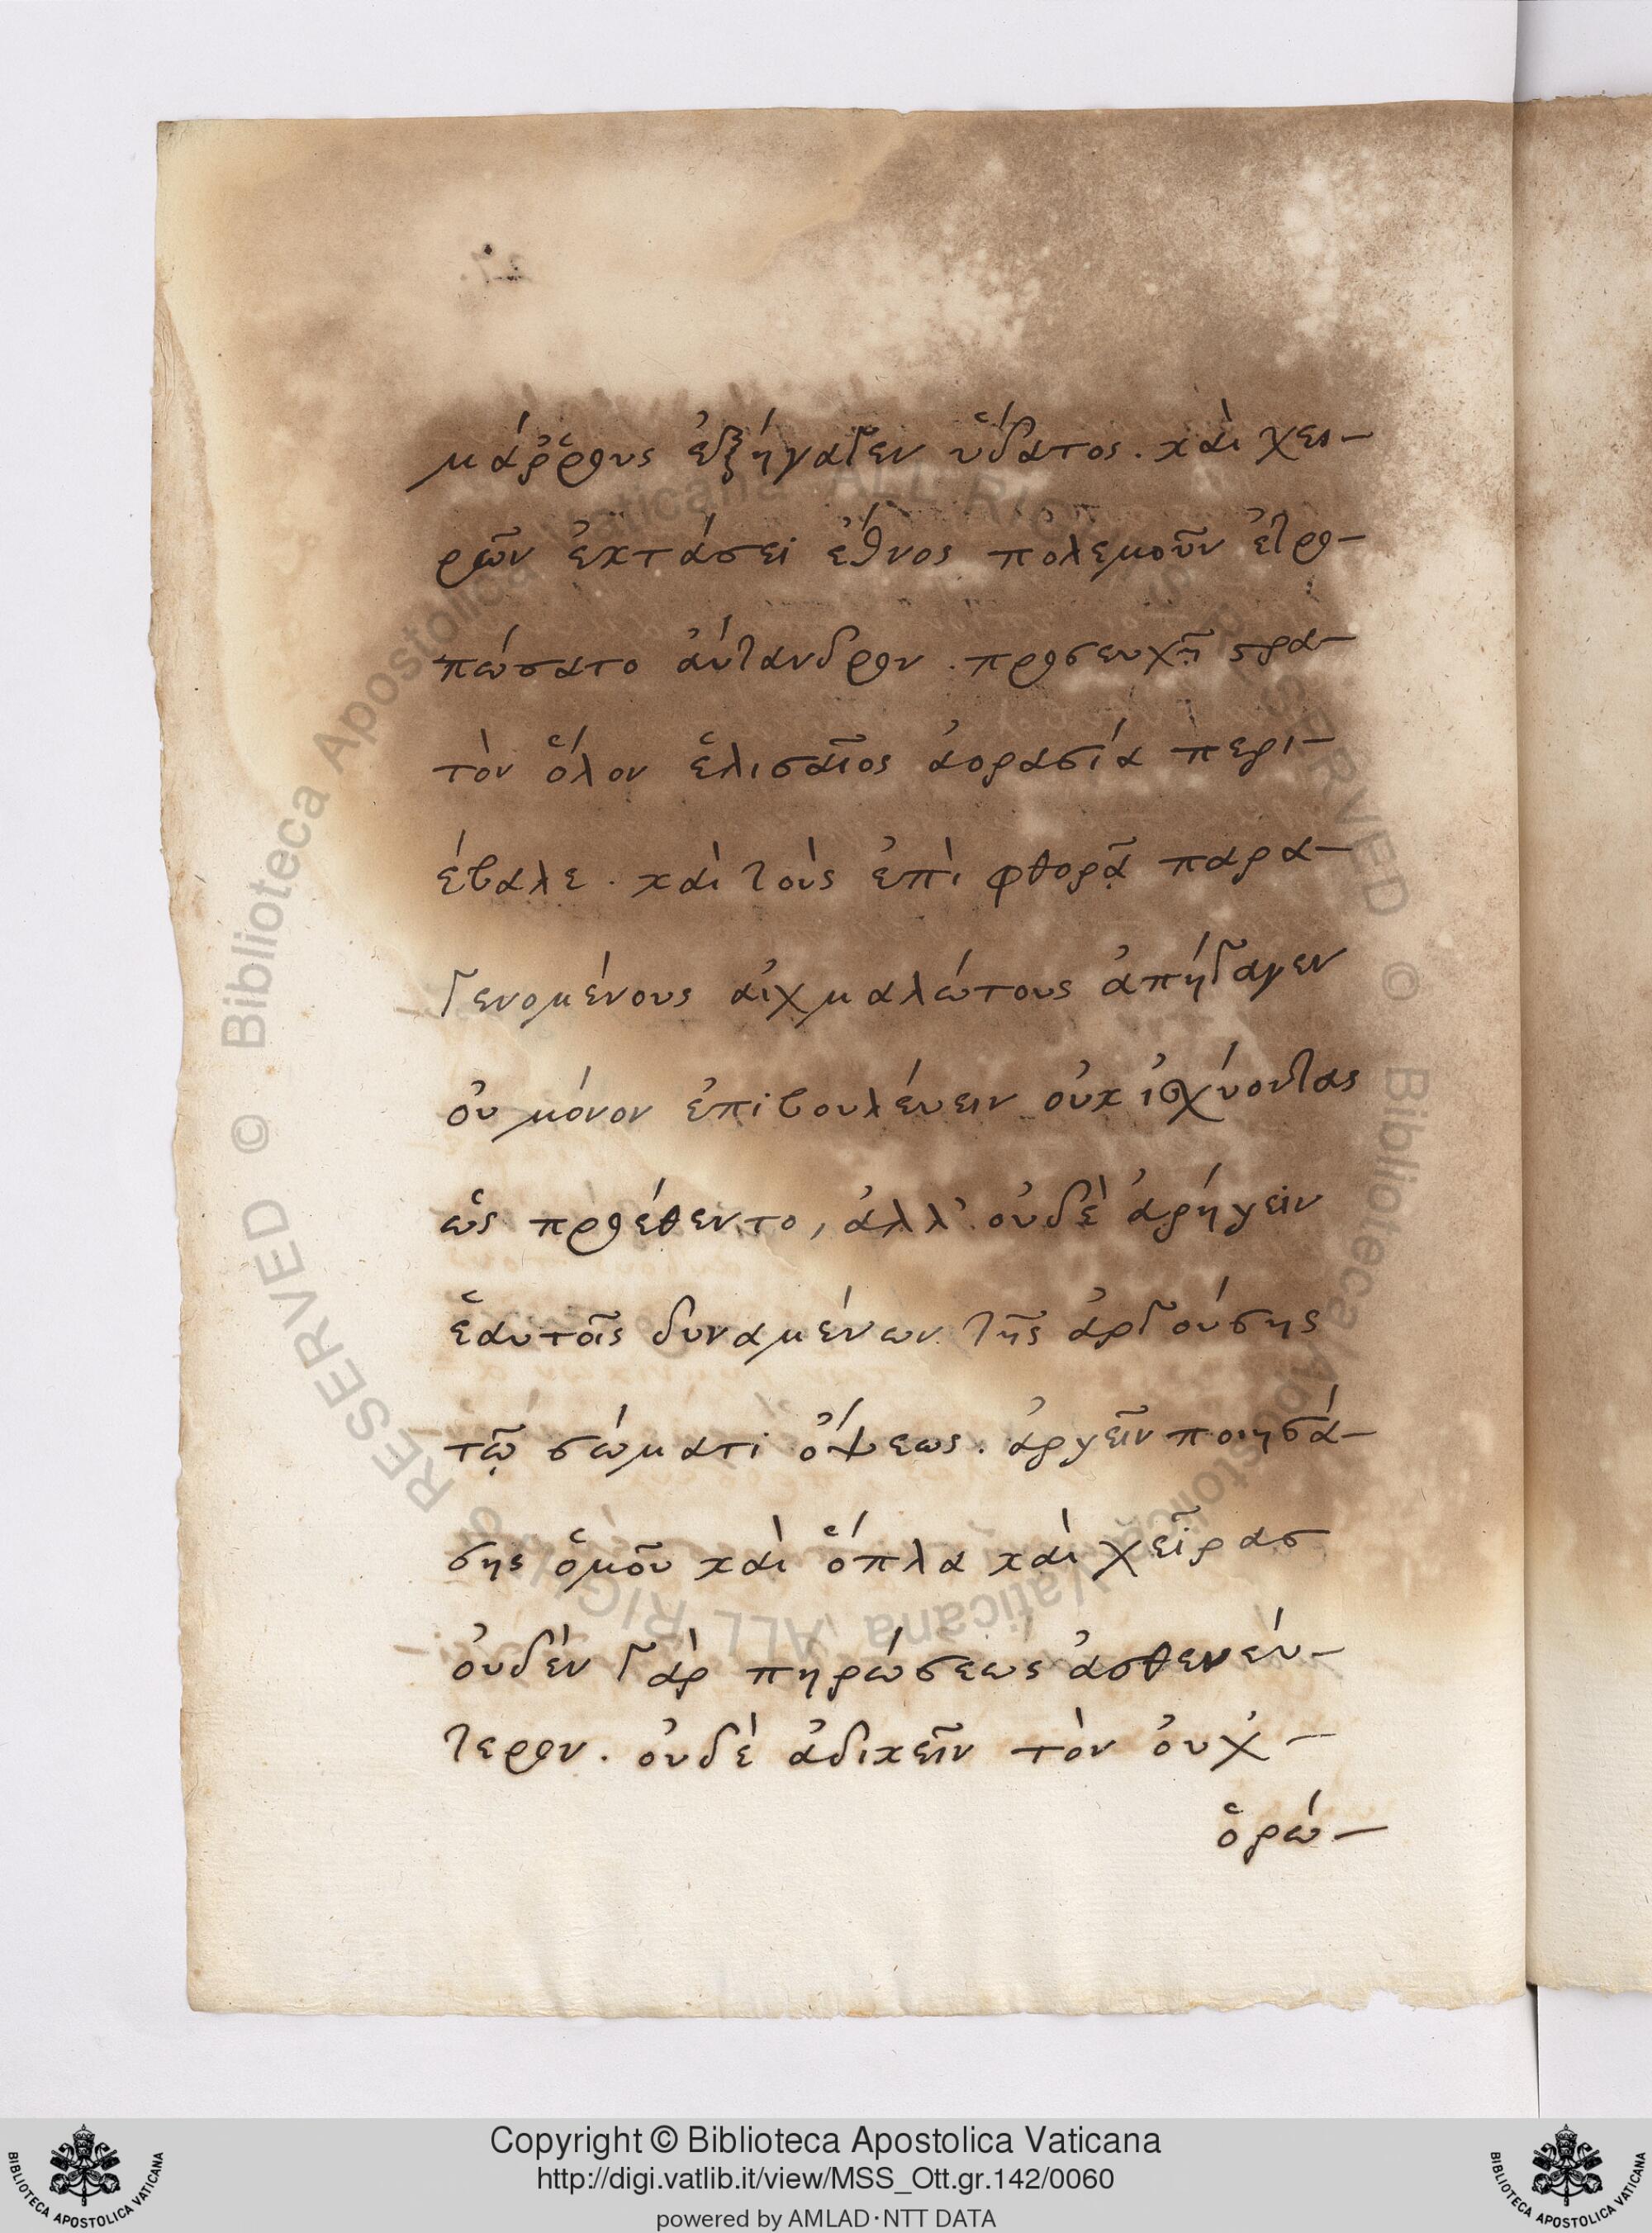 μάῤῥους ἐξήγαγεν ὕδατος. καὶ χει-
ρῶν ἐκτάσει ἔθνος πολεμοῦν ἐτρο-
πώσατο ἀύτανδρον. προσευχῇ στρα-
τὸν ὅλον ἑλισαῖος ἀορασία περι-
έβαλε. καὶ τοὺς ἐπὶ φθορᾷ παρα-
γενομένους αἰχμαλώτους ἀπήγαγεν
οὐ μόνον ἐπιβουλέυειν οὐκ ἰσχύοντας
ὡς προέθεντο, ἀλλ' οὐδὲ ἀρήγειν
ἑαυτοῖς δυναμένων τῆς ἀργούσης
τῷ σώματι ὄψεως. ἀργεῖν ποιησά-
σης ὁμοῦ καὶ ὅπλα καὶ χεῖρασ
ὀυδὲν γὰρ πηρώσεως ἀσθενέυ-
τερον. ὀυδὲ ἀδικεῖν τὸν ὀυχ -
ὁρώ-
© Biblioteca Apostolica Vaticana ALL RIGHTS RESERVED © Biblioteca Apostolica Vaticana ALL RIGHTS RESERVED
Copyright © Biblioteca Apostolica Vaticana
http://digi.vatlib.it/view/MSS_Ott.gr.142/0060
powered by AMLAD·NTT DATA
BIBLIOTECA APOSTOLICA VATICANA
BIBLIOTECA APOSTOLICA VATICANA